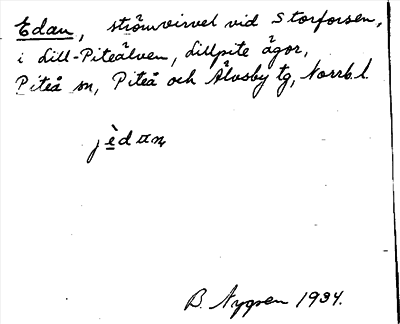 Edan, strömvirvel vid Storforsen,
i Lill-Piteälven, Lillpite ägor,
Piteå sn, Piteå och Älvsby tg, Norrb. l.
jèdan
B. Nygren 1934.